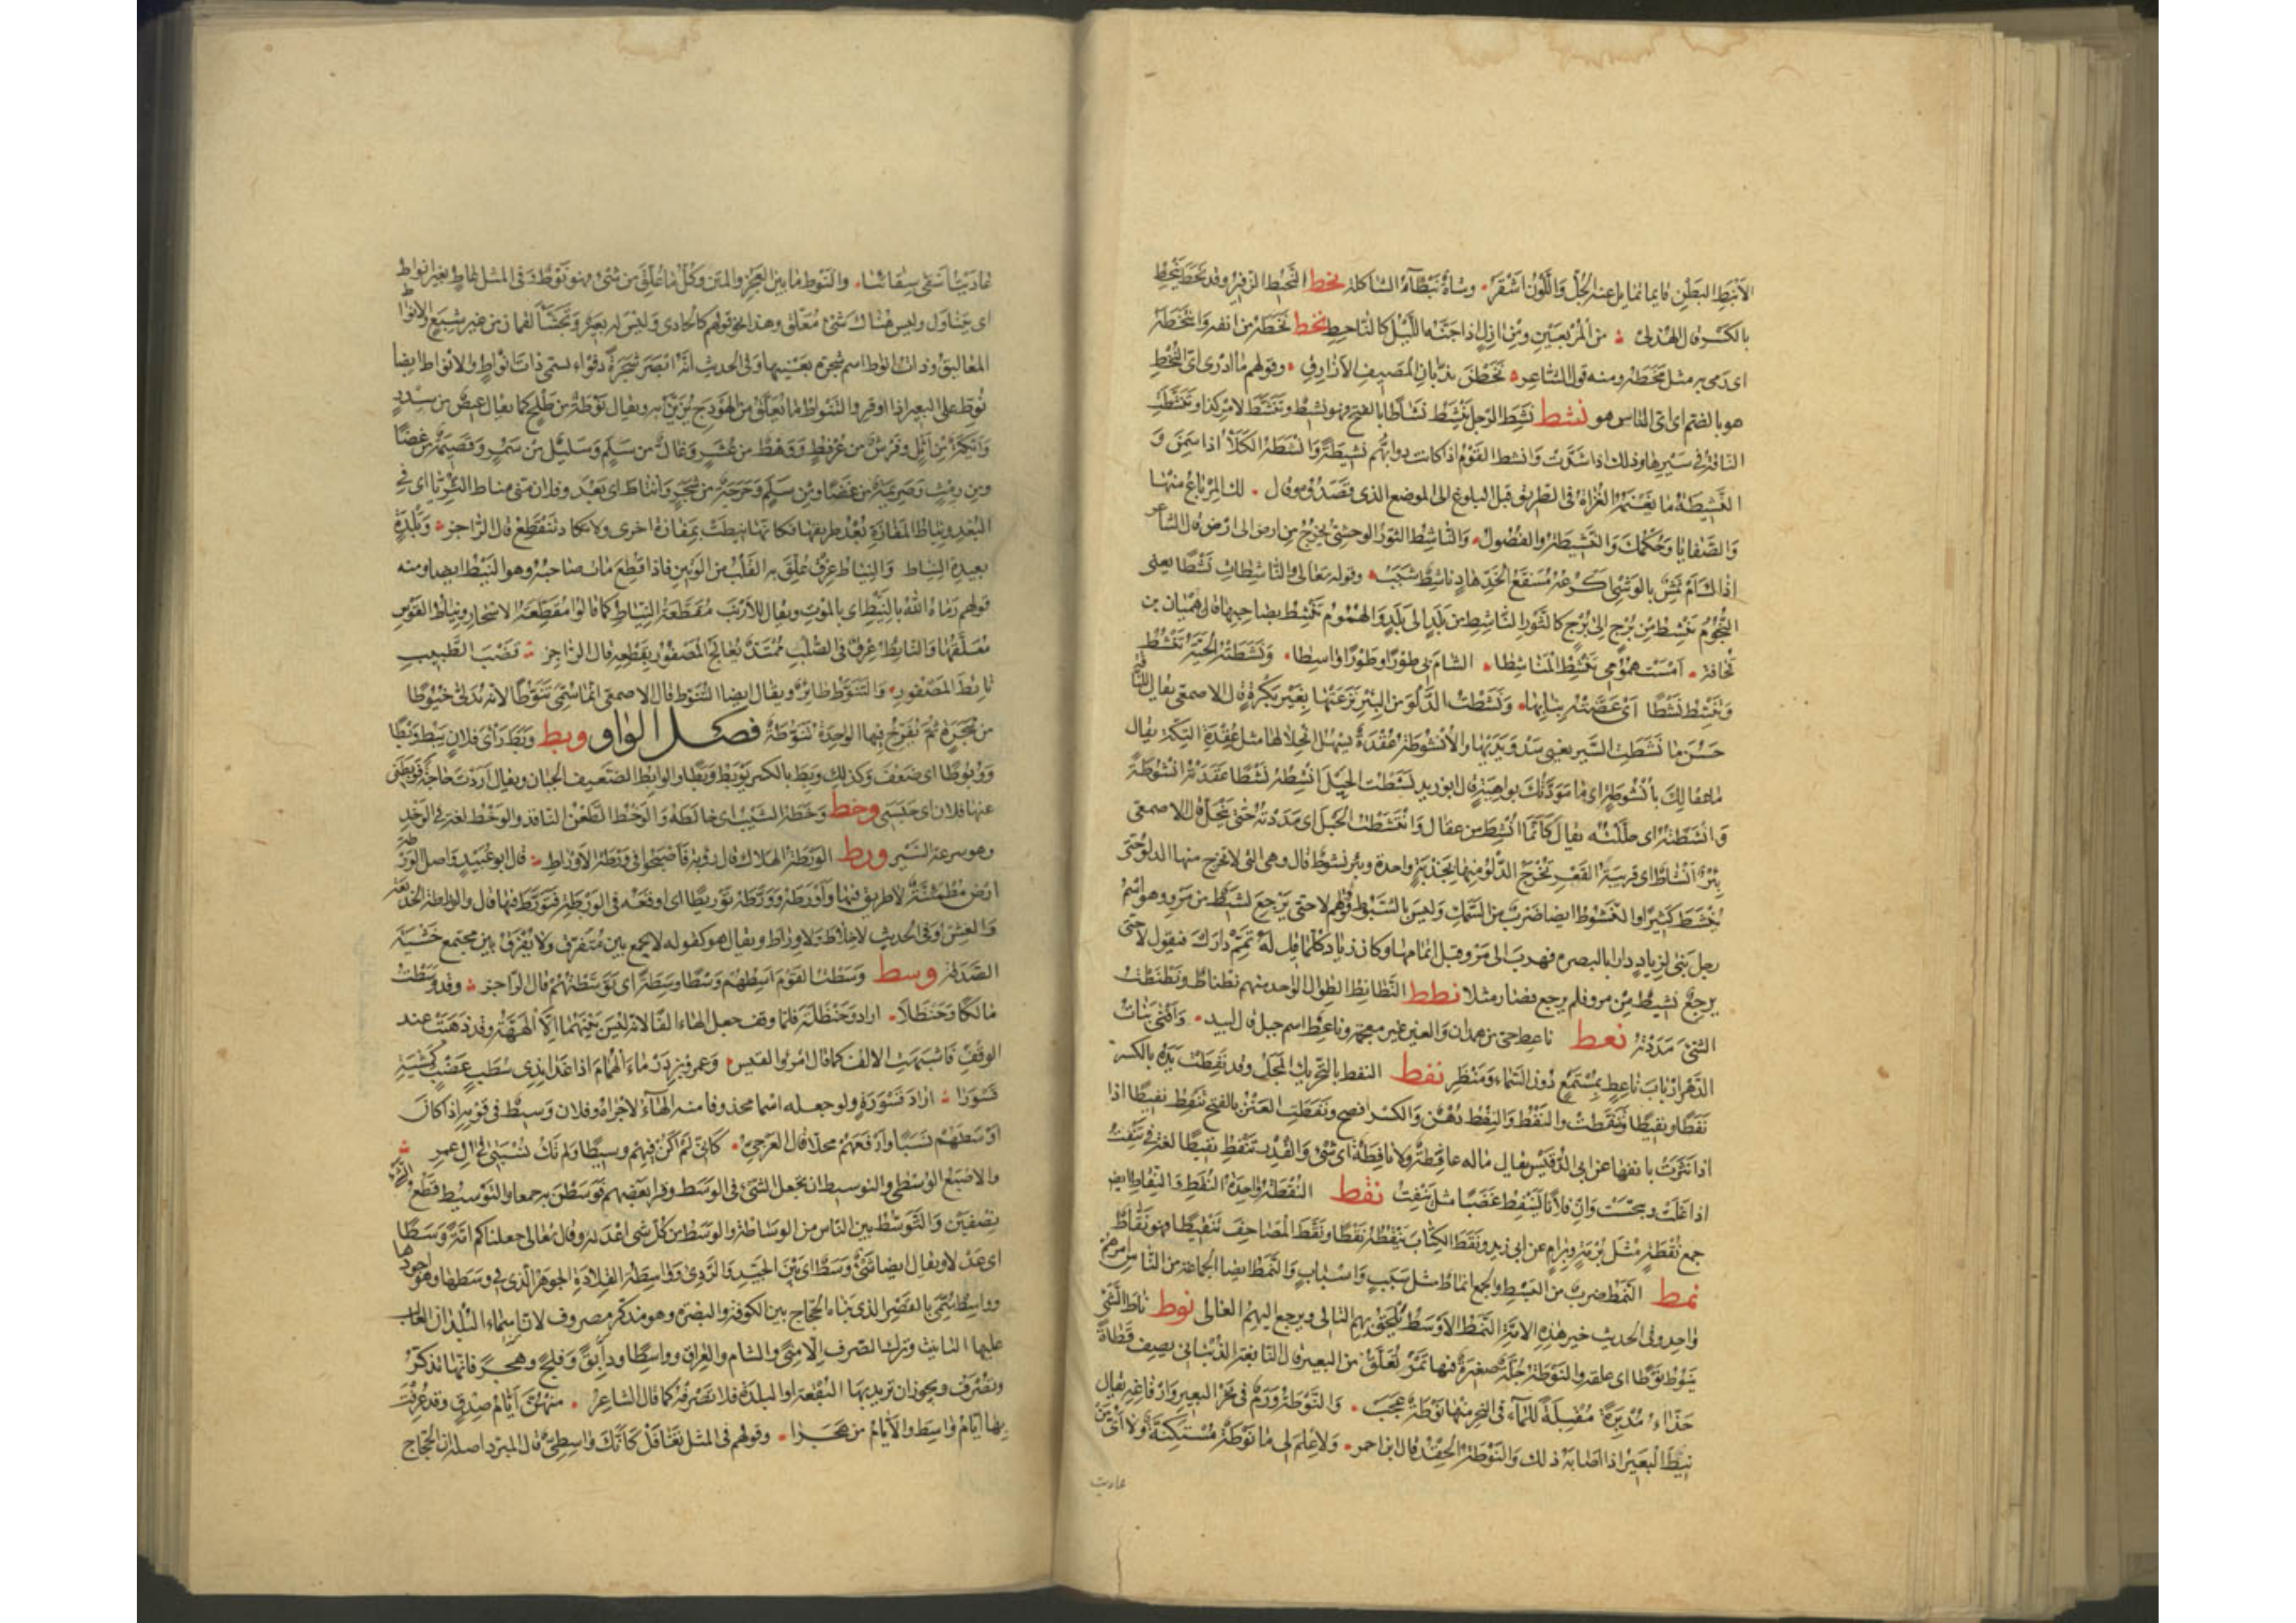 الأنبط البطن قايما تمايل عنه الجل واللون أشقر وشاة نبطآء الشاكلة نحط النحيط الزفير وقد نحط ينحط
بالكسر قال الهذلي من المربعين ومن آزل اذا جنه الليل كالناحط نخط نخطه من انفه وانتخطه
اى رمى به مثل مخطه ومنه قول الشاعر نخطن بذبان المصيف الازارق وقولهم ما ادرى اى النخط
هو بالضم اى اى الناس هو نشط نشط الرجل ينشط نشاطا بالفتح فهو نشيط وتنشط لامر كذا وتنشطت
الناقة في سيرها وذلك اذا شدت وانشط القوم اذا كانت دوابهم نشيطة وانشطه الكلأ اذا سمن و
النشيطة ما يغنمه الغزاة فى الطريق قبل البلوغ الى الموضع الذى قصدوه وقال لك المرباع منها
والصفايا وحكمك والنشيطة والفضول والناشط الثور الوحشى يخرج من ارض الى ارض قال الشاعر
اذاك ام نمش بالوشى اكرعه مسفع الخد هاد ناشط شبب وقوله تعالى والناشطات نشطا يعنى
النجوم تنشط من برج الى برج كالثور الناشط من بلد الى بلد والهموم تنشط بصاحبها قال هميان بن
قحافة امست همومى تنشط المناشطا الشام بى طورا وطورا واسطا ونشطته الحية تنشط
وتنشط نشطا اى عضته بنابها ونشطت الدلو من البئر نزعتها بغير بكرة قال الاصمعى يقال للناقة
حسن ما نشطت السير يعنى سدو يديها والأنشوطة عقدة يسهل انحلالها مثل عقدة التكة يقال
ما عقالك بأنشوطة اى ما مودتك بواهية قال ابو زيد نشطت الحبل انشطه نشطا عقدته انشوطة
وانشطته اى حللته يقال كأنما انشط من عقال وانتشطت الحبل اى مددته حتى ينحل قال الاصمعى
بئر انشاط اى قريبة القعر تخرج الدلو منها بجذبة واحدة وبئر نشوط قال وهى التى لا تخرج منها الدلو حتى
تنشط كثيرا والنشوط ايضا ضرب من السمك وليس بالشبوط قولهم لا حتى يرجع نشيط من مرو وهو اسم
رجل بنى لزياد دارا بالبصرة فهرب الى مرو قبل اتمامها وكان زياد كلما قيل له تمم دارك فيقول لا حتى
يرجع نشيط من مرو فلم يرجع فصار مثلا نطط النطانط الطوال الواحد منهم نطناط ونطنطت
الشئ مددته نعط ناعط حى من همدان والعين غير معجمة وناعط اسم جبل قال لبيد وافنى بنات
الدهر ارباب ناعط بمستمع دون السماء ومنظر نفط النفط بالتحريك المجل وقد نفطت يده بالكسر
نفطا ونفيطا وتنفطت والنفط والنفط دهن والكسر افصح ونفطت العنز بالفتح تنفط نفيطا اذا
اذا نثرت بانفها عن ابى الدقيش يقال ماله عافطة ولا نافطة اى شئ والقدر تنفط نفيطا لغة فى تنفت
اذا غلت وبجست وان فلانا لينفط غضبا مثل ينفت نقط النقطة واحدة النقط والنقاط ايضا
جمع نقطة مثل برمة وبرام عن ابى زيد ونقط الكتاب ينقطه نقطا ونقط المصاحف تنقيطا فهو نقاط
نمط النمط ضرب من البسط والجمع انماط مثل سبب واسباب والنمط ايضا الجماعة من الناس امرهم
واحد وفى الحديث خير هذه الامة النمط الاوسط يلحق بهم التالى ويرجع اليهم الغالى نوط ناط الشئ
ينوط نوطا اى علقه والنوطة جلة صغيرة فيها تمر تعلق من البعير قال النابغة الذبيانى يصف قطاة
حذاء مدبرة مقبلة للماء فى النحر منها نوطة عجب والنوطة ورم فى نحر البعير وارفاغه يقال
نيط البعير اذا اصابه ذلك والنوطة الحقد قال ابن احمر ولا علم لى ما نوطة مستكنة ولا اى من
عاديت
عاديت اسقى سقائنا والنوط ما بين العجز والمتن وكل ما علق من شئ فهو نوط وفى المثل عاط بغير انواط
اى يتناول وليس هناك شئ معلق وهذا نحو قولهم كالحادى وليس له بعير وتجشأ لقمان من غير شبع والانواط
المعاليق وذات انواط اسم شجرة بعينها وفى الحديث انه ابصر شجرة دفواء تسمى ذات انواط والانواط ايضا
نوط على البعير اذا اوقر والتنواط ما يعلق من الهودج يزين به ويقال نوطة من طلح كما يقال عيص من سدر
وايكة من اثل وفرش من عرفط ووهط من عشر وغال من سلم وسليل من سمر وقصيمة من غضا
ومن رمث وصريمة من غضا ومن سلم وحرجة من شجر وانتاط اى بعد وفلان منى مناط الثريا اى فى
البعد ونياط المفازة بعد طريقها فكانها نيطت بمفازة اخرى ولا تكاد تنقطع قال الراجز وبلدة
بعيدة النياط والنياط عرق علق به القلب من الوتين فاذا قطع مات صاحبه وهو النيط ايضا ومنه
قولهم رماه الله بالنيط اى بالموت ويقال للارنب مقطعة النياط كما قالوا مقطعة الاسحار ونياط القوس
معلقها والنايط عرق فى الصلب ممتد يعالج المصفور بقطعه قال الراجز قضب الطبيب
نايط المصفور والتنوط طاير ويقال ايضا التنوط قال الاصمعى انما سمى تنوطا لانه يدلى خيوطا
من شجرة ثم يفرخ فيها الواحدة تنوطة فصل الواو وبط وبط رأى فلان يبط وبطا
ووبوطا اى ضعف وكذلك وبط بالكسر يوبط وبطا والوابط الضعيف الجبان ويقال اردت حاجة فوبطنى
عنها فلان اى حبسنى وخط وخطه الشيب اى خالطه والوخط الطعن النافذ والوخط لغة فى الوخد
وهو سرعة السير ورط الورطة الهلاك قال رؤبة فأصبحوا فى ورطة الاوراط قال ابو عبيد واصل الورطة
ارض مطمئنة لا طريق فيها واورطه وورطه توريطا اى اوقعه فى الورطة فتورط فيها قال والوراط الخديعة
والغش وفى الحديث لا خلاط ولا وراط ويقال هو كقوله لا يجمع بين متفرق ولا يفرق بين مجتمع خشية
الصدقة وسط وسطت القوم اسطهم وسطا وسطة اى توسطتهم قال الراجز وقد وسطت
مالكا وحنظلا اراد وحنظلة فلما وقف جعل الهاء الفا لانه ليس بينهما الا الههة وقد ذهبت عند
الوقف فاشبهت الالف كما قال امرؤ القيس وعمرو بن درماء الهمام اذا غدا بذى شطب عضب كمشية
قسورا اراد قسورة ولو جعله اسما محذوفا منه الهاء لاجراه وفلان وسيط فى قومه اذا كان
اوسطهم نسبا وارفعهم محلا قال العرجى كانى لم اكن فيهم وسيطا ولم تك نسبتى فى ال عمرو
والاصبع الوسطى والتوسيط ان تجعل الشئ فى الوسط وقرأ بعضهم فوسطن به جمعا والتوسيط قطع الشئ
نصفين والتوسط بين الناس من الوساطة والوسط من كل شئ اعدله وقال تعالى جعلناكم امة وسطا
اى عدلا ويقال ايضا شئ وسط اى بين الجيد والردئ وواسطة القلادة الجوهر الذى فى وسطها وهو اجودها
وواسط سمى بالقصر الذى بناه الحجاج بين الكوفة والبصرة وهو مذكر مصروف لان اسماء البلدان الغالب
عليها التانيث وترك الصرف الا منى والشام والعراق وواسطا ودابق وفلج وهجر فانها تذكر
وتصرف ويجوز ان تريد بها البقعة او البلدة فلا تصرفه كما قال الشاعر منهن ايام صدق قد عرفت
بها ايام واسط والأيام من هجرا وقولهم فى المثل تغافل كأنك واسطى قال المبرد اصله ان الحجاج